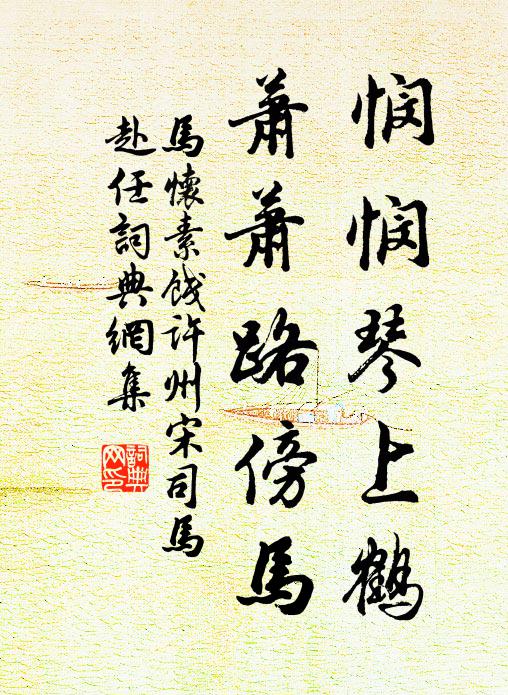 悯悯琴上鶴
蕭蕭路傍馬
馬懷素餞許州宋司馬
赴任詞典網集
詞典
网印